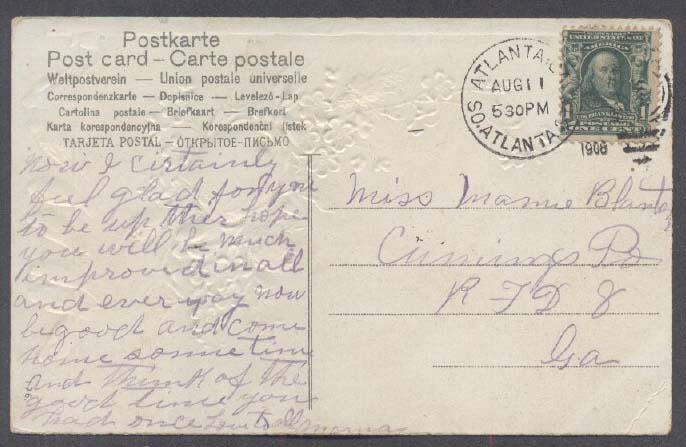 Postkarte
Post card — Carte postale
Weltpostverein — Union postale universelle
Correspondenzkarte — Dopisnice — Levelező-Lap
Cartolina postale — Briefkaart — Brefkort
Karta korespondencyjna — Korespondenční lístek
TARJETA POSTAL — ОТКРЫТОЕ-ПИСЬМО
SO. ATLANTA, GA. ATLANTA
AUG 11
530PM
1908
UNITED STATES OF
AMERICA
1 1
POSTAGE
ONE CENT
now I certainly
feel glad for you
to be up ther hope
you will be much
improved in all
and ever way now
be good and come
home sonmetime
and think of the
good time you
had once love to all mama
Miss Mamie
Cummings
R F D 8
Ga